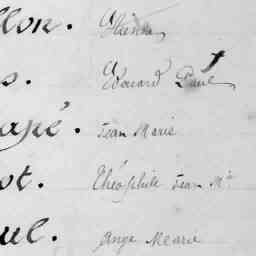 llon. Etienne
s. Edouard Paul
apé. Jean Marie
ot. Théophile Jean Mie
uel. Ange Marie